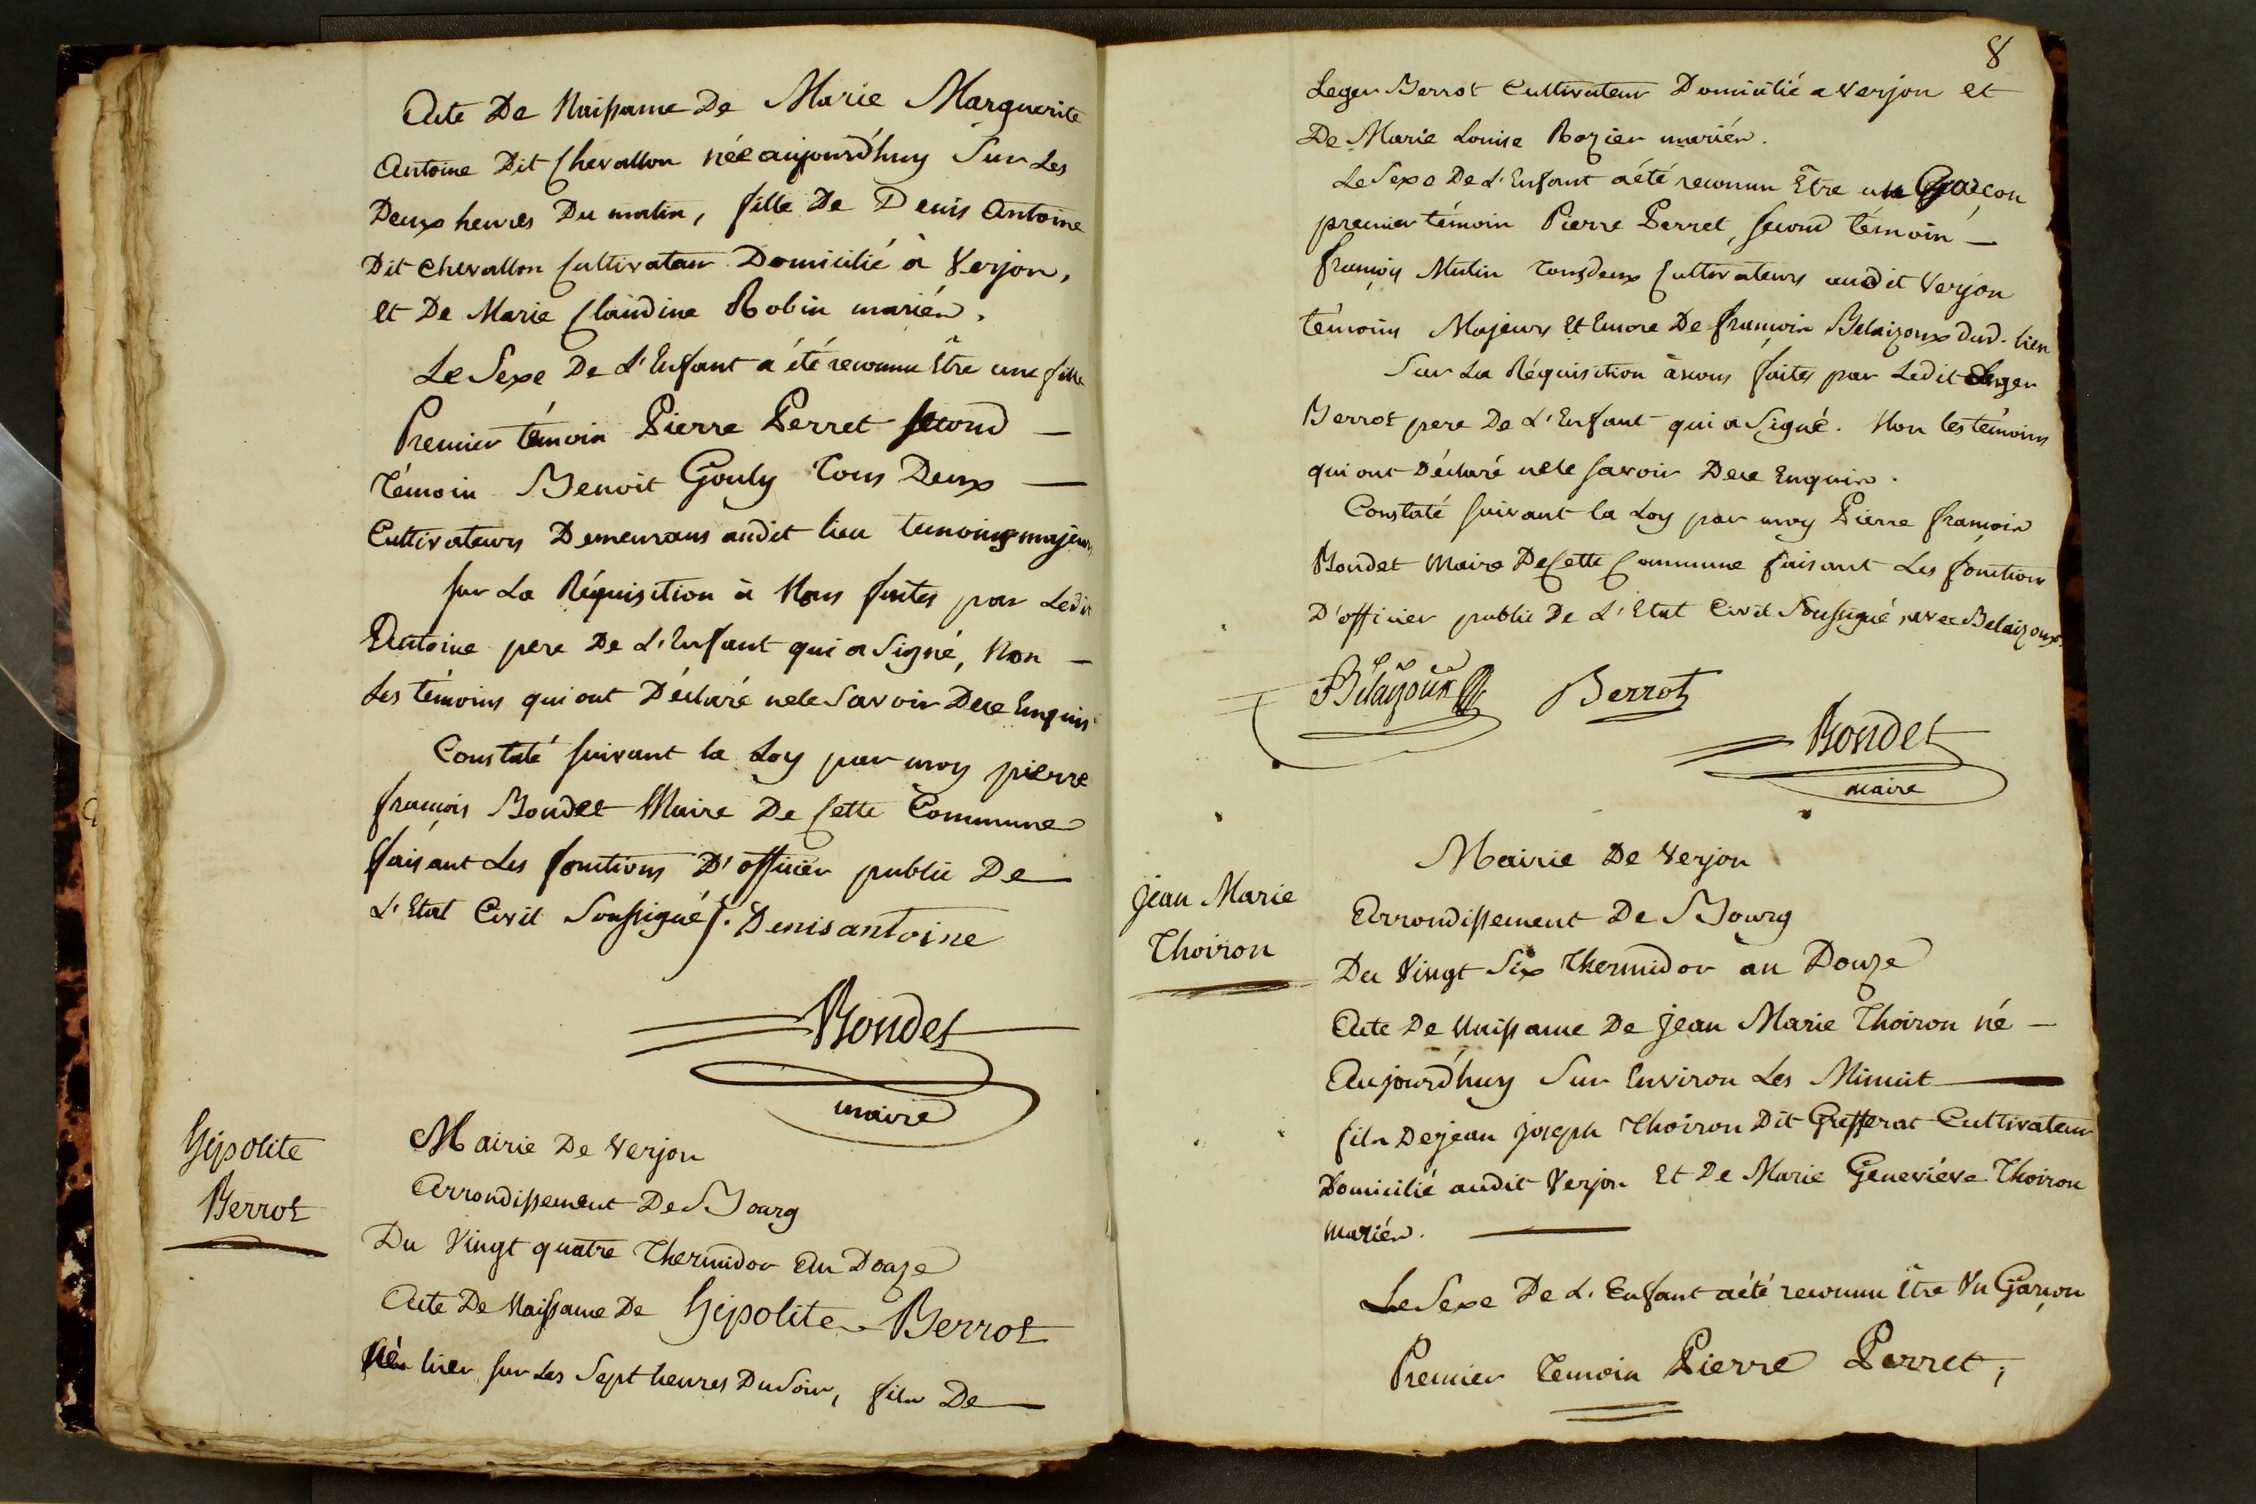 Acte De Naissance De Marie Marguerite
Antoine Dit Chevallon née aujourd'huy Sur Les
Deux heures Du matin, fille De Denis Antoine
Dit Chevallon Cultivateur Domicilié à Verjon,
Et De Marie Claudine Robin mariés.
Le Sexe De L'Enfant a été reconnu Être une fille
Premier témoin Pierre Perret second —
Témoin Benoit Gouly Tous Deux —
Cultivateurs Demeurans audit lieu temoins majeurs
Sur La Réquisition à Nous faites par Ledit
Antoine pere De L'Enfant qui a Signé, Non —
Les témoins qui ont Déclaré ne le Savoir De ce Enquis
Constaté suivant la Loy par moy pierre
françois Bondet Maire De Cette Commune
faisant Les fonctions D'officier public De
L'Etat Civil Soussigné. Denis antoine
Bondet
maire
Hipolite
Berrot
Mairie De Verjon
Arrondissement De Bourg
Du Vingt quatre Thermidor An Douze
Acte De Naissance De Hipolite Berrot
Né hier sur Les Sept heures Du Soir, fils De
8
Leger Berrot Cultivateur Domicilié a Verjon et
De Marie Louise Rozier mariés.
Le Sexe De L'Enfant a été reconnu Être un Garçon
premier témoin Pierre Perret, second témoin —
françois Mutin tous deux Cultivateurs audit Verjon
témoins Majeurs Et Encore De françois Belaizoux dud. lieu
Sur La Réquisition à nous faites par Ledit Leger
Berrot pere De L'Enfant qui a Signé. Non les témoins
qui ont Déclaré ne le savoir De ce Enquis.
Constaté suivant la Loy par moy Pierre françois
Bondet Maire De Cette Commune faisant Les fonctions
D'officier public De L'Etat Civil Soussigné, avec Belaizoux.
Belaizoux Berrot
Bondet
maire
Jean Marie
Thoiron
Mairie De Verjon
Arrondissement De Bourg
Du Vingt Six Thermidor an Douze
Acte De Naissance De Jean Marie Thoiron né —
Aujourd'huy Sur Environ Les Minuit
fils De jean joseph Thoiron Dit Grefferat Cultivateur
Domicilié audit Verjon Et De Marie Geneviéve Thoiron
mariés.
Le Sexe De L'Enfant a été reconnu Être Un Garçon
Premier Temoin Pierre Perret,